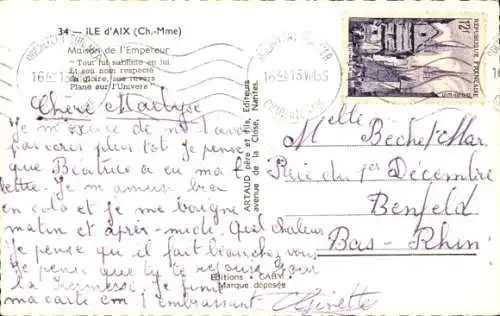 34 — ILE d'AIX (Ch.-Mme)
Maison de l'Empereur
"Tout fut sublime en lui
Et son nom respecté
sa Gloire, aux revers
Plane sur l'Univers"
12f
REPUBLIQUE FRANÇAISE
CHARENTE
ARTAUD père et fils, Editeurs
avenue de la Close, Nantes.
Chère Marlyse
Je m'excuse de ne t'avoir
pas écris plus tôt. Je pense
que Béatrice a eu ma
lettre. Je m'amuse bien
en colo et je me baigne
matin et après-midi. Quel chaleur
Je pense qu'il fait beau chez vous
Je pense que tu te repose pour
la Kermesse. Je finis
ma carte en t'embrassant Ginette
Melle Bechel Mar
Rue du 1er Decembre
Benfeld
Bas-Rhin
Editions "GABY"
Marque déposée